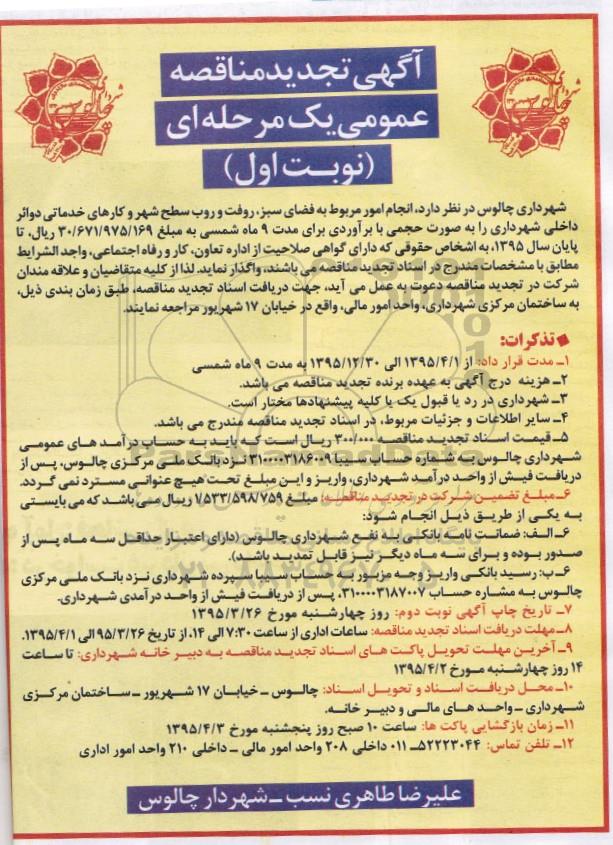 آگهی تجدید مناقصه
عمومی یک مرحله ای
(نوبت اول)
شهرداری چالوس در نظر دارد، انجام امور مربوط به فضای سبز، روفت و روب سطح شهر و کارهای خدماتی دوائر
داخلی شهرداری را به صورت حجمی با برآوردی برای مدت ۹ ماه شمسی به مبلغ ۳۰/۶۷۱/۹۷۵/۱۶۹ ریال، تا
پایان سال ۱۳۹۵، به اشخاص حقوقی که دارای گواهی صلاحیت از اداره تعاون، کار و رفاه اجتماعی، واجد الشرایط
مطابق با مشخصات مندرج در اسناد تجدید مناقصه می باشند، واگذار نماید. لذا از کلیه متقاضیان و علاقه مندان
شرکت در تجدید مناقصه دعوت به عمل می آید، جهت دریافت اسناد تجدید مناقصه، طبق زمان بندی ذیل،
به ساختمان مرکزی شهرداری، واحد امور مالی، واقع در خیابان ۱۷ شهریور مراجعه نمایند.
تذکرات:
۱ـ مدت قرار داد: از ۱۳۹۵/۴/۱ الی ۱۳۹۵/۱۲/۳۰ به مدت ۹ ماه شمسی
۲ـ هزینه درج آگهی به عهده برنده تجدید مناقصه می باشد.
۳ـ شهرداری در رد یا قبول یک یا کلیه پیشنهادها مختار است.
۴ـ سایر اطلاعات و جزئیات مربوط، در اسناد تجدید مناقصه مندرج می باشد.
۵ـ قیمت اسناد تجدید مناقصه ۳۰۰/۰۰۰ ریال است که باید به حساب درآمد های عمومی
شهرداری چالوس به شماره حساب سیبا ۳۱۰۰۰۰۳۱۸۶۰۰۹ نزد بانک ملی مرکزی چالوس، پس از
دریافت فیش از واحد درآمد شهرداری، واریز و این مبلغ تحت هیچ عنوانی مسترد نمی گردد.
۶ـ مبلغ تضمین شرکت در تجدید مناقصه: مبلغ ۱/۵۳۳/۵۹۸/۷۵۹ ریال می باشد که می بایستی
به یکی از طریق ذیل انجام شود:
۶ـ الف: ضمانت نامه بانکی به نفع شهرداری چالوس (دارای اعتبار حداقل سه ماه پس از
صدور بوده و برای سه ماه دیگر نیز قابل تمدید باشد).
۶ـ ب: رسید بانکی واریز وجه مزبور به حساب سپرده شهرداری نزد بانک ملی مرکزی
چالوس به مشاره حساب ۳۱۰۰۰۰۳۱۸۷۰۰۷، پس از دریافت فیش از واحد درآمدی شهرداری.
۷ـ تاریخ چاپ آگهی نوبت دوم: روز چهارشنبه مورخ ۱۳۹۵/۳/۲۶
۸ـ مهلت دریافت اسناد تجدید مناقصه: ساعات اداری از ساعت ۷:۳۰ الی ۱۴، از تاریخ ۹۵/۳/۲۶ الی ۱۳۹۵/۴/۱.
۹ـ آخرین مهلت تحویل پاکت های اسناد تجدید مناقصه به دبیر خانه شهرداری: تا ساعت
۱۴ روز چهارشنبه مورخ ۱۳۹۵/۴/۲
۱۰ـ محل دریافت اسناد و تحویل اسناد: چالوس ـ خیابان ۱۷ شهریور ـ ساختمان مرکزی
شهرداری ـ واحد های مالی و دبیر خانه.
۱۱ـ زمان بازگشایی پاکت ها: ساعت ۱۰ صبح روز پنجشنبه مورخ ۱۳۹۵/۴/۳
۱۲ـ تلفن تماس: ۵۲۲۲۳۰۴۴ـ۰۱۱ داخلی ۲۰۸ واحد امور مالی ـ داخلی ۲۱۰ واحد امور اداری
علیرضا طاهری نسب ـ شهردار چالوس